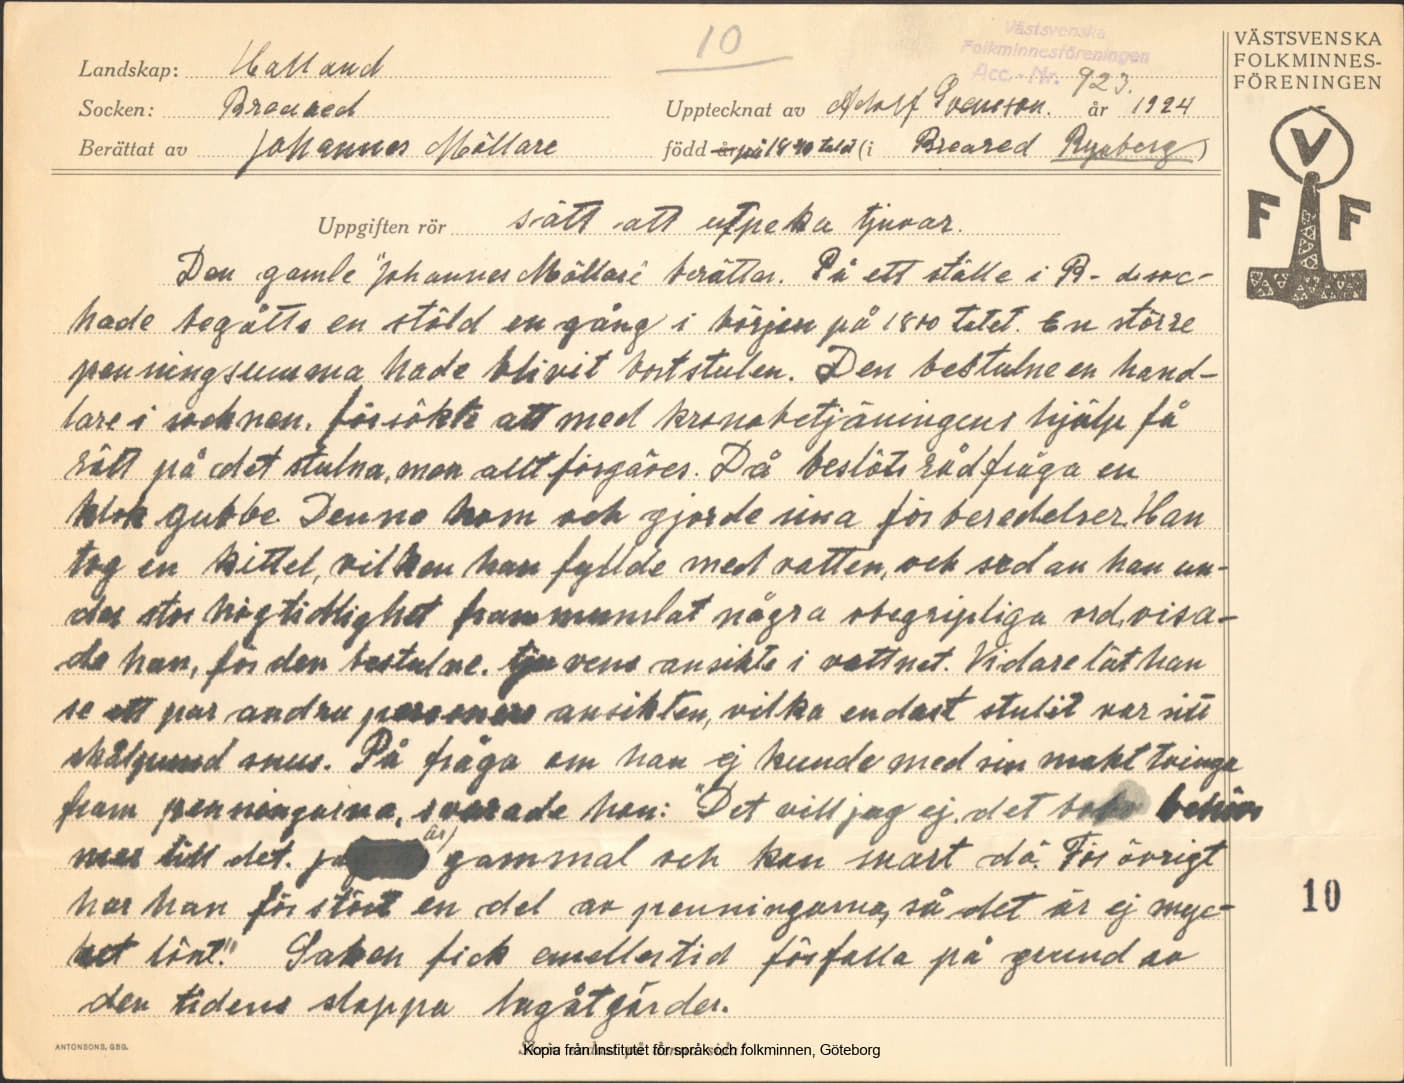 10
Västsvenska
Folkminnesföreningen
Acc.-Nr. 923.
VÄSTSVENSKA
FOLKMINNES-
FÖRENINGEN
V
F F
Landskap: Halland
Socken: Breared Upptecknat av Adolf Svensson. år 1924
Berättat av Johannes Möllare född år på 1840 talet (i Breared Ryaberg)
Uppgiften rör sätt att utpeka tjuvar.
Den gamle "Johannes Möllare" berättar. På ett ställe i B-d soc-
hade begåtts en stöld en gång i början på 1800 talet. En större
penningsumma hade blivit bortstulen. Den bestulne en hand-
lare i socknen, försökte att med kronobetjäningens hjälp få
rätt på det stulna, men allt förgäves. Då beslöts rådfråga en
klok gubbe. Denne kom och gjorde sina förberedelser. Han
tog en kittel, vilken han fyllde med vatten, och sedan han un-
der stor högtidlighet frammumlat några obegripliga ord, visa-
de han, för den bestulne. tjuvens ansikte i vattnet. Vidare lät han
se ett par andra personers ansikten, vilka endast stulit var sitt
skålpund snus. På fråga om han ej kunde med sin makt tvinga
fram penningarna, svarade han: "Det vill jag ej, det behövs
mer till det. jag är) gammal och kan snart dö. För övrigt
har han förstört en del av penningarna, så det är ej myc-
ket lönt." Saken fick emellertid förfalla på grund av
den tidens slappa lagåtgärder.
10
ANTONSONS, GBG.
Kopia från Institutet för språk och folkminnen, Göteborg